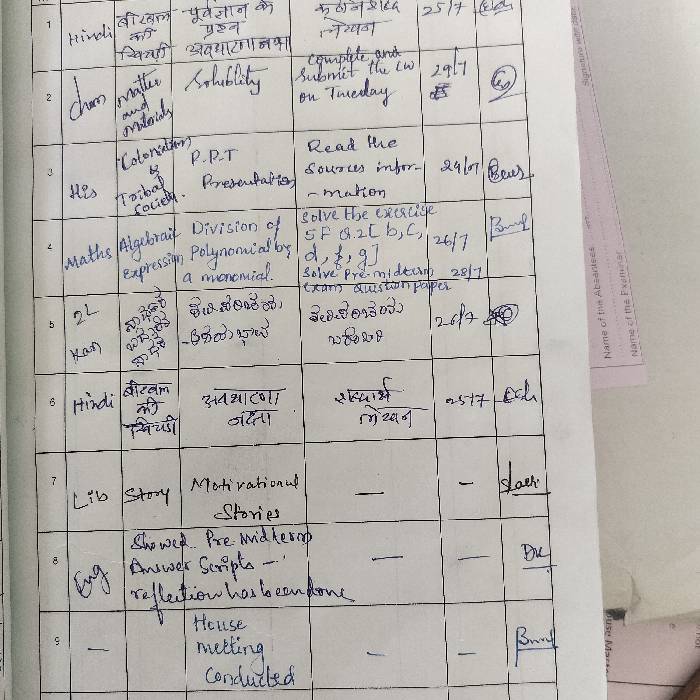 1
Hindi
बीरबल
की
खिचड़ी
पूर्वज्ञान के
प्रश्न
कठिन शब्द
लेखन
25/7
2
Chem
Matter
and
materials
Solublity
complete and
submit the CW
on Tuesday
29/7
3
His
Colonialism
&
Tribal
Society.
P.P.T
Presentation
Read the
Sources infor-
-mation
24/07
4
Maths
Algebraic
Expression
Division of
Polynomial by
a monomial.
Solve the exercise
5F Q.2[b, c,
d, f, g]
26/7
Solve Pre-midterm
exam question paper
28/7
5
2L
Kan
26/7
6
Hindi
बीरबल
की
खिचड़ी
अवधारणा
नक्शा
शब्दार्थ
लेखन
25/7
7
Lib
Story
Motivational
Stories
—
-
8
Eng
Showed Pre-midterm
Answer Scripts —
reflection has been done
—
—
9
—
House
metting
Conducted
—
—
Name of the Absentees
Name of the Examiner